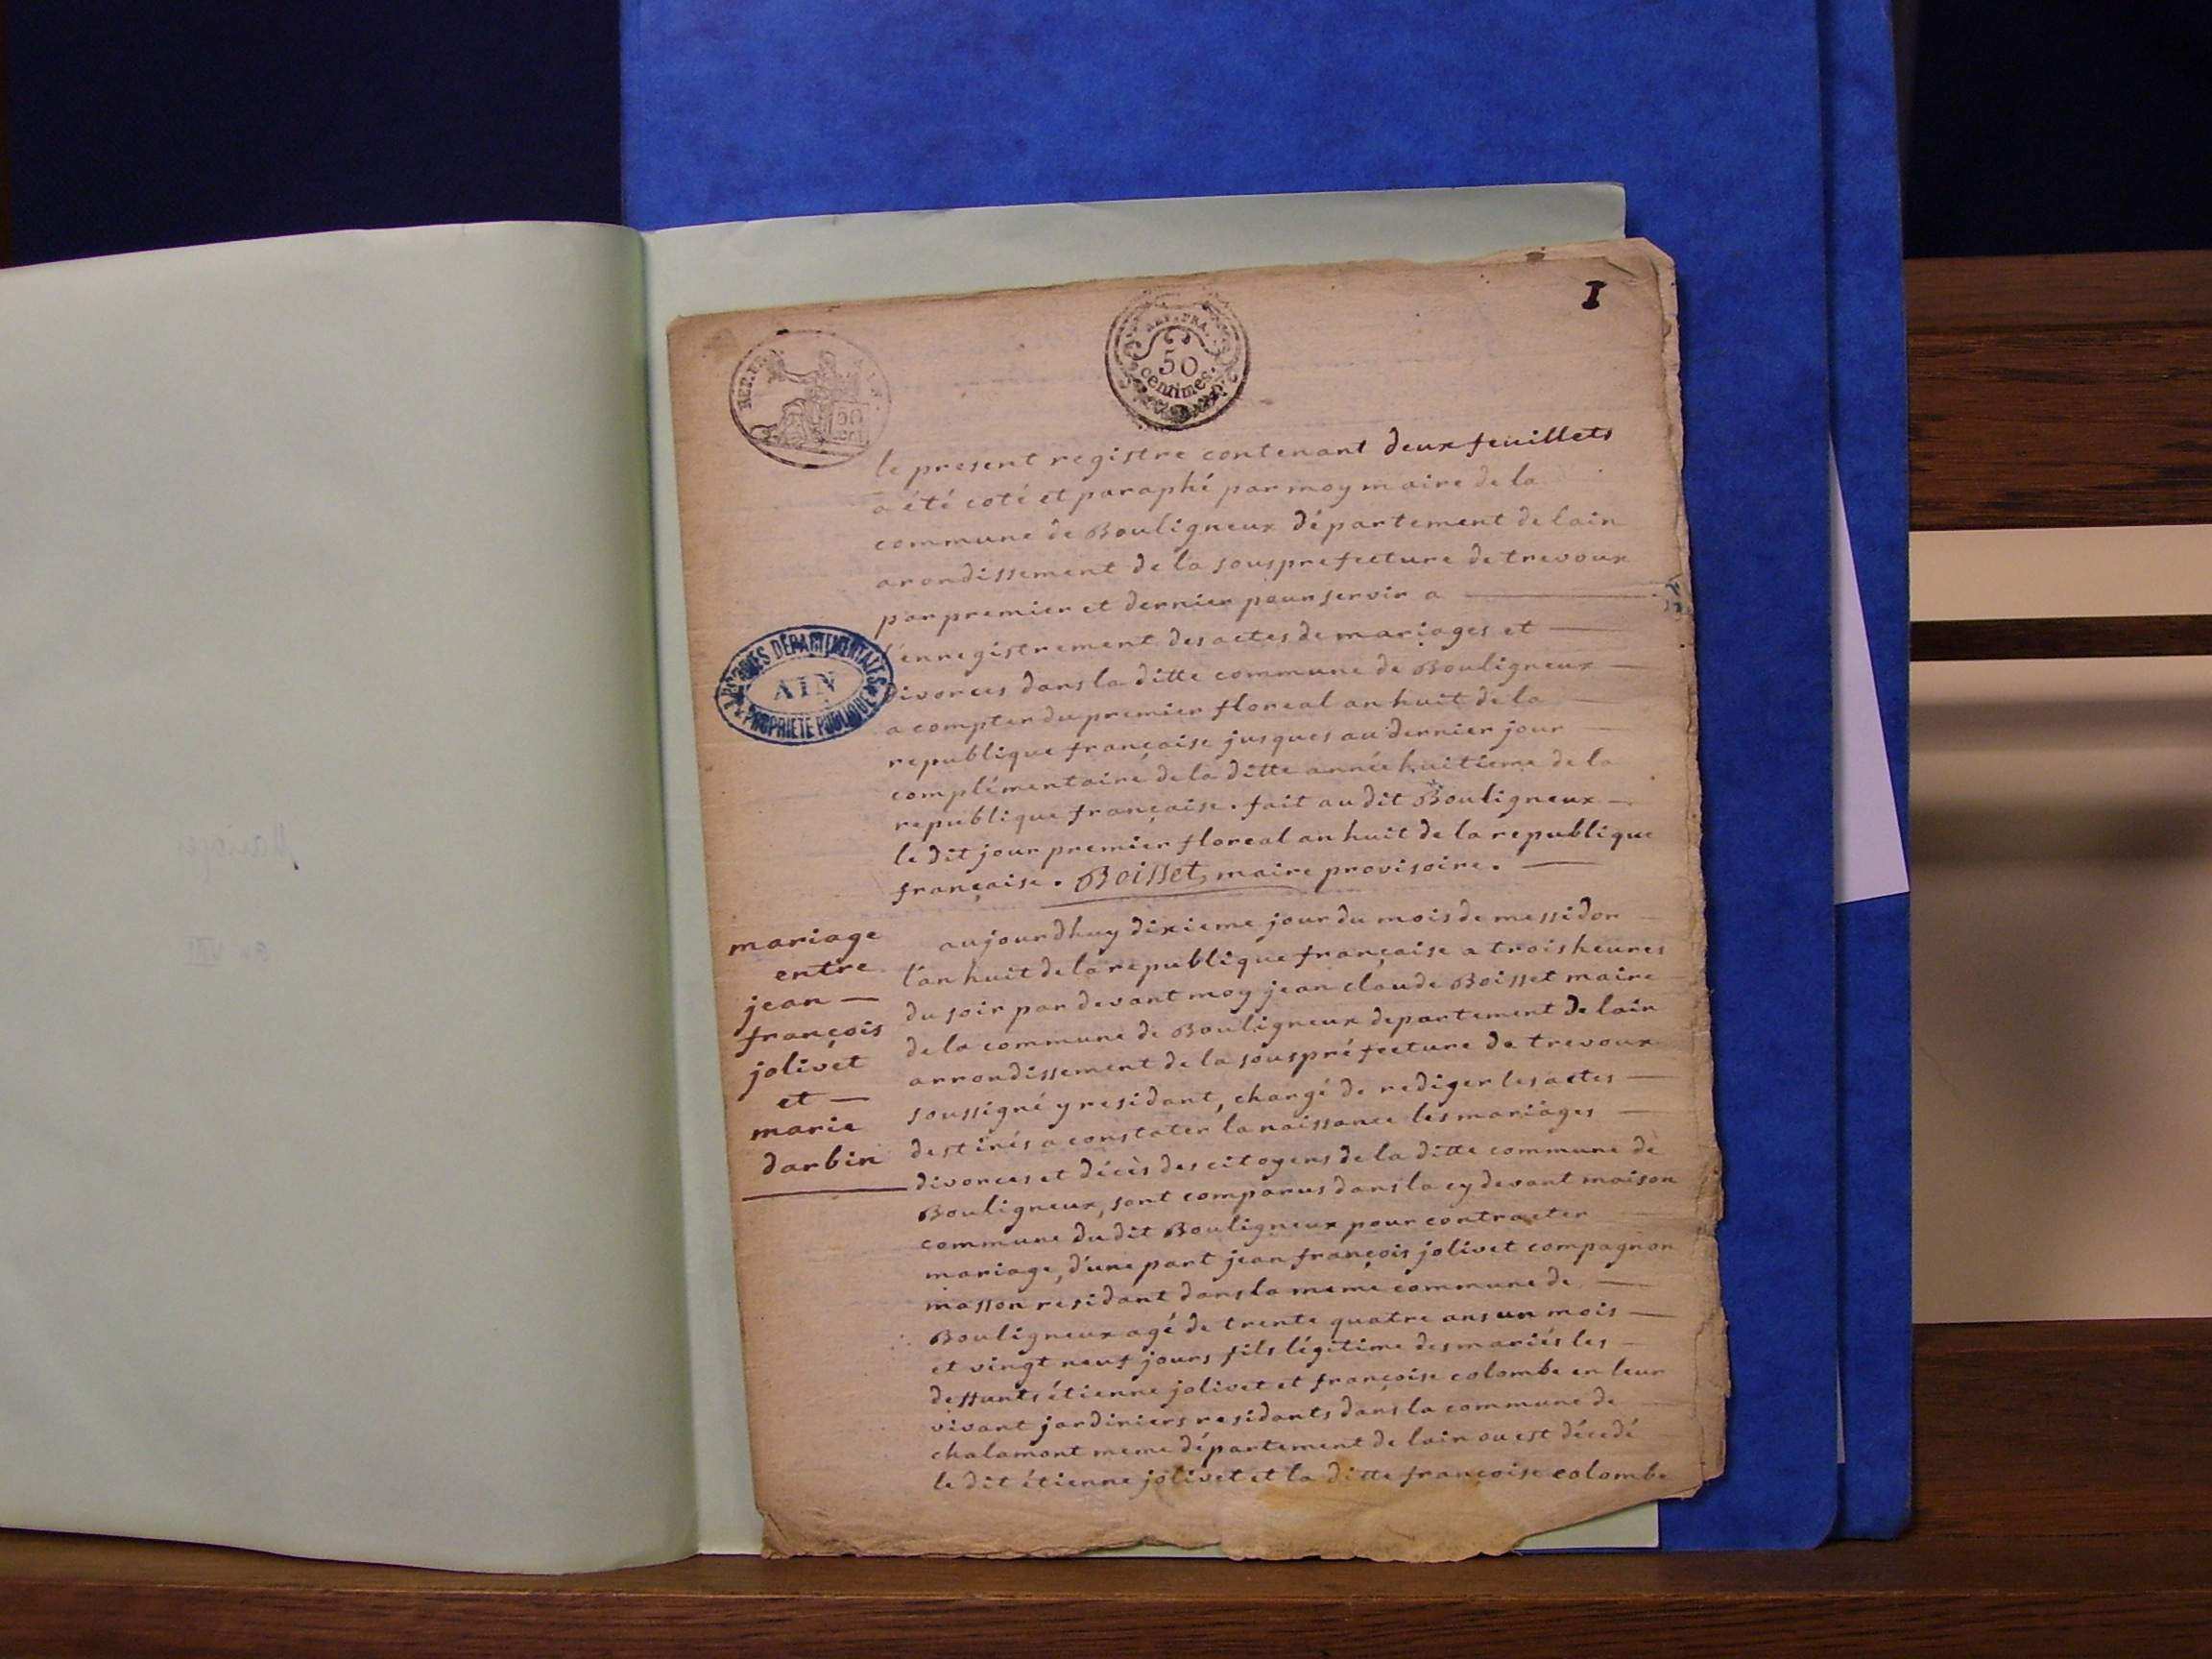 1
REP. FRA.
50
centimes.
REP. FRA
le present registre contenant deux feuillets
a été coté et paraphé par moy maire de la
commune de Bouligneux département de lain
arondissement de la souspréfecture de trevoux
par premier et dernier pour servir a
l'enregistrement des actes de mariages et
divorces dans la ditte commune de Bouligneux
a compter du premier floreal an huit de la
republique française jusques au dernier jour
complémentaire de la ditte année huitieme de la
republique française. fait au dit Bouligneux
le dit jour premier floreal an huit de la republique
française. Boisset, maire provisoire.
ARCHIVES DÉPARTEMENTALES
AIN
PROPRIÉTÉ PUBLIQUE
mariage
entre
jean
françois
jolivet
et
marie
darbin
aujourdhuy dixieme jour du mois de messidor
l'an huit de la republique française a trois heures
du soir par devant moy jean claude Boisset maire
de la commune de Bouligneux departement de lain
arrondissement de la souspréfecture de trevoux
soussigné y residant, chargé de rediger les actes
destinés a constater la naissance les mariages
divorces et décès des citoyens de la ditte commune de
Bouligneux, sont comparus dans la cy devant maison
commune du dit Bouligneux pour contracter
mariage, d'une part jean françois jolivet compagnon
masson residant dans la meme commune de
Bouligneux agé de trente quatre ans un mois
et vingt neuf jours fils légitime des mariés les
deffunts étienne jolivet et françoise colombe en leur
vivant jardiniers residants dans la commune de
chalamont meme département de lain ou est décédé
le dit étienne jolivet et la ditte françoise colombe